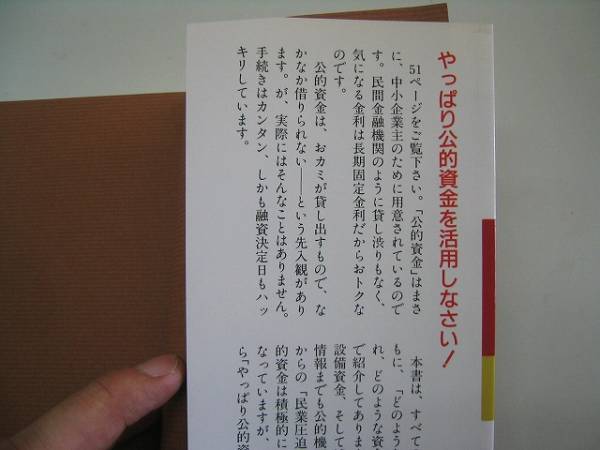 やっぱり公的資金を活用しなさい!
51ページをご覧下さい。「公的資金」はまさ
に、中小企業主のために用意されているので
す。民間金融機関のように貸し渋りもなく、
気になる金利は長期固定金利だからおトクな
のです。
公的資金は、おカミが貸し出すもので、な
かなか借りられない――という先入観があり
ます。が、実際にはそんなことはありません。
手続きはカンタン、しかも融資決定日もハッ
キリしています。
本書は、すべて
もに、「どのよう
れ、どのような資
で紹介してありま
設備資金、そして
情報までも公的機
からの「民業圧迫
的資金は積極的に
なっていますが、
ら「やっぱり公的資